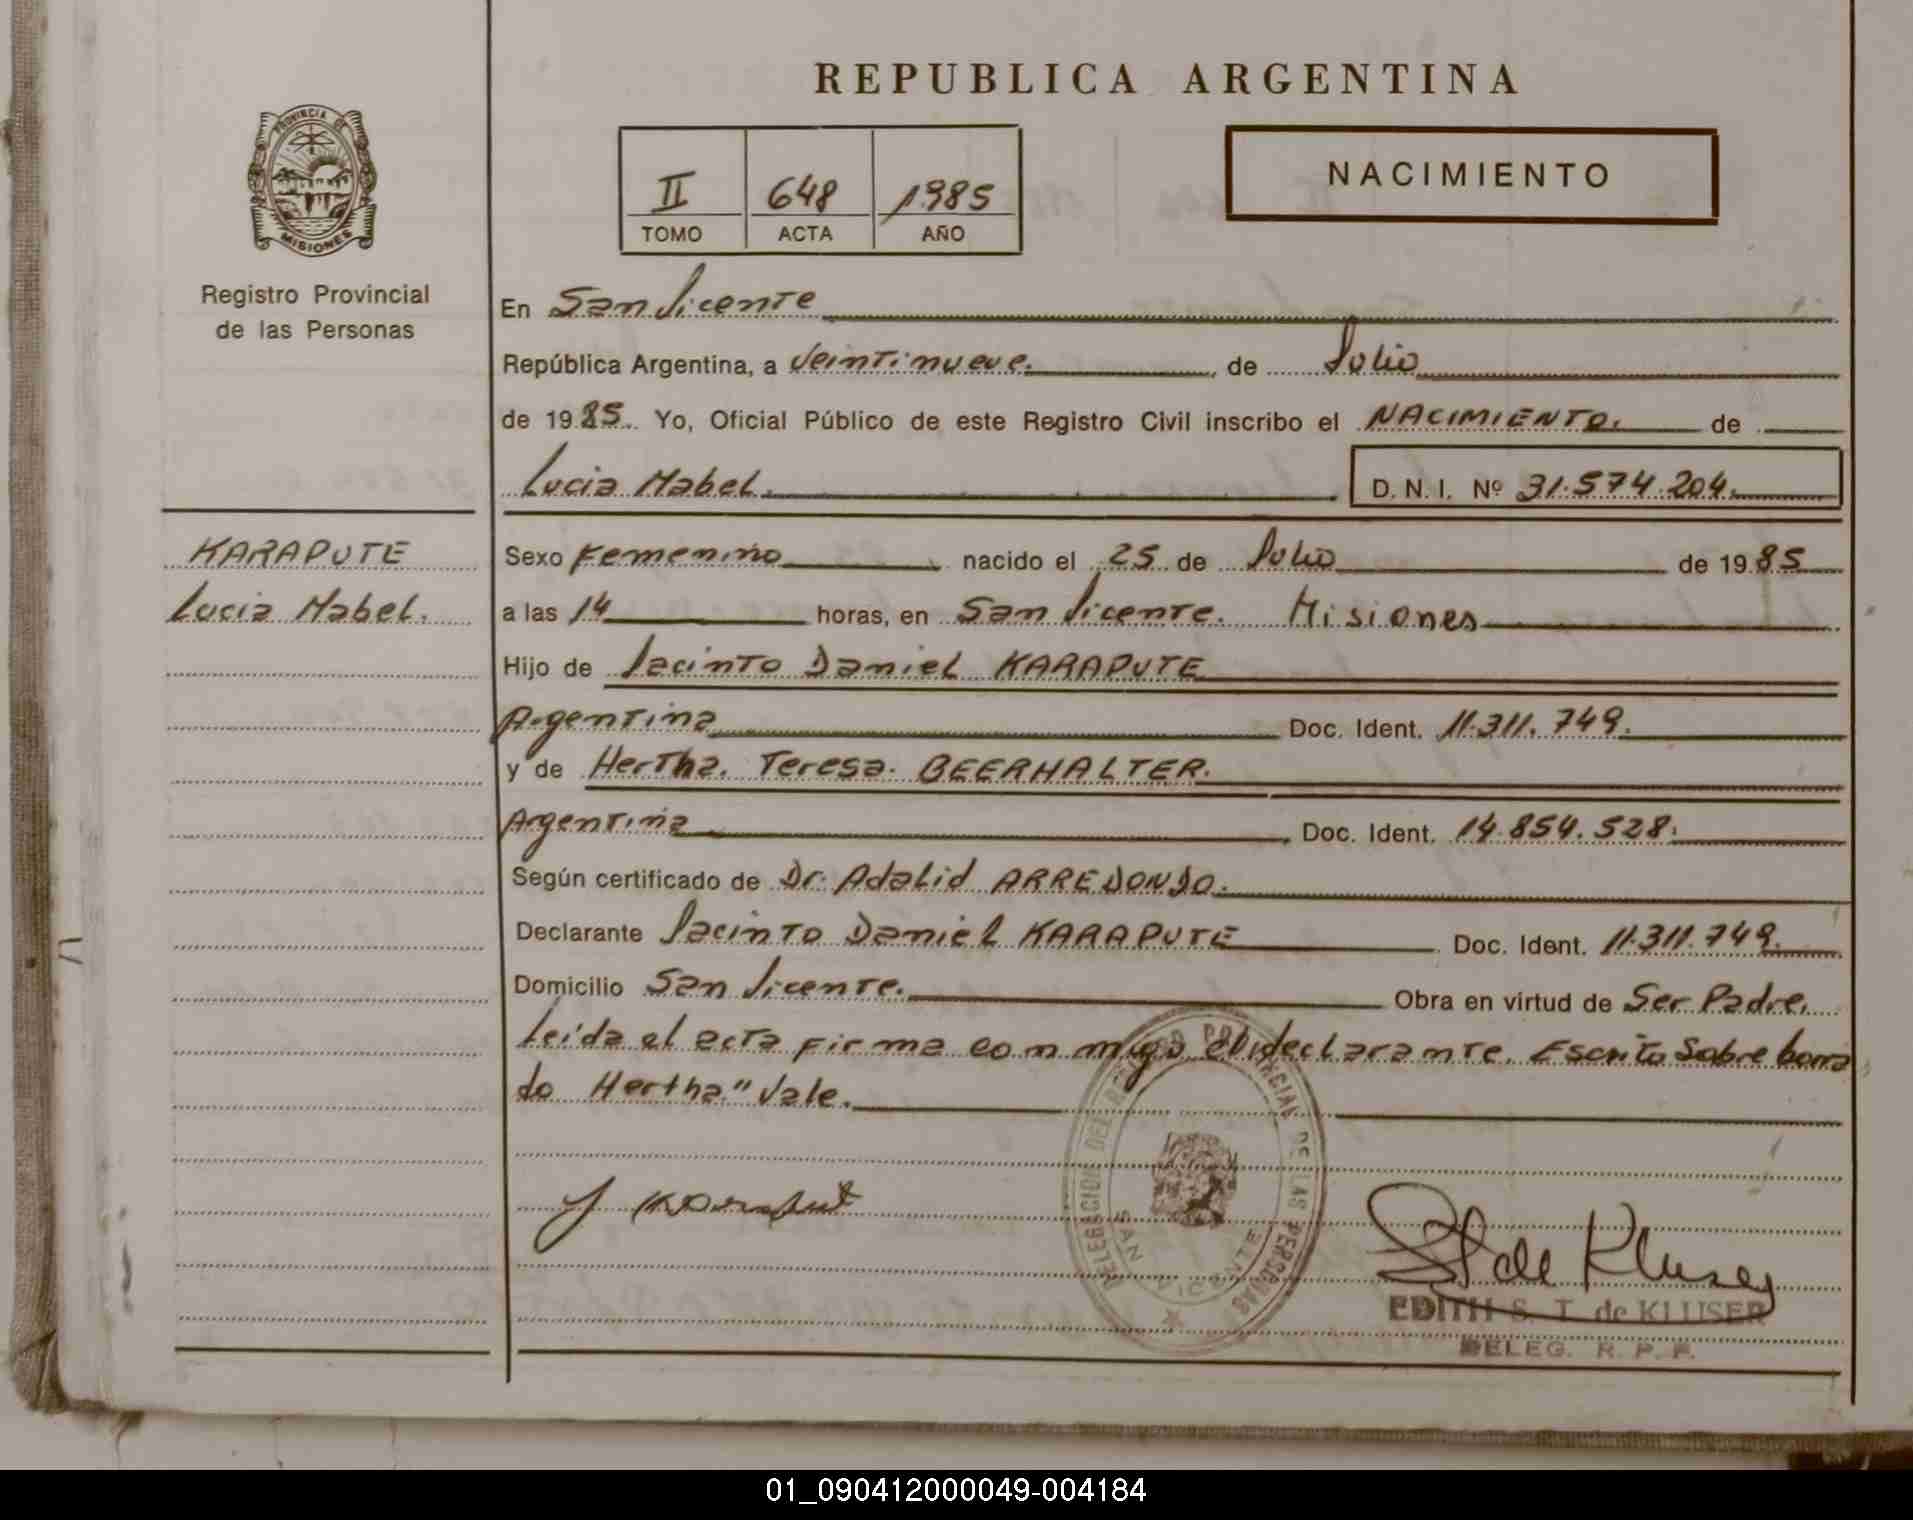 REPUBLICA ARGENTINA
PROVINCIA DE
MISIONES
Registro Provincial
de las Personas
II 648 1985
TOMO ACTA AÑO
NACIMIENTO
En San Vicente
República Argentina, a Veintinueve. de Julio
de 1985. Yo, Oficial Público de este Registro Civil inscribo el NACIMIENTO. de
Lucia Mabel. D. N. I. Nº 31.574.204.
KARAPUTE
Lucia Mabel.
Sexo Femenino nacido el 25 de Julio de 1985
a las 14 horas, en San Vicente. Misiones
Hijo de Jacinto Daniel KARAPUTE
Argentina Doc. Ident. 11.311.749.
y de Hertha. Teresa. BEERHALTER.
Argentina Doc. Ident. 14.854.528.
Según certificado de Dr. Adalid ARREDONDO.
Declarante Jacinto Daniel KARAPUTE Doc. Ident. 11.311.749.
Domicilio San Vicente. Obra en virtud de Ser Padre.
Leída el acta firma conmigo el declarante. Escrito Sobre borra
do Hertha" Vale.
DELEGACION DEL REGISTRO PROVINCIAL DE LAS PERSONAS
SAN VICENTE
J Karaput
ST de Kluser
EDITH S. T. de KLUSER
DELEG. R. P. P.
01_090412000049-004184